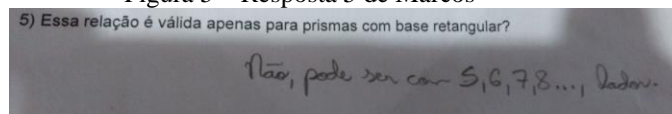 Figura 3 – Resposta 5 de Marcos
5) Essa relação é válida apenas para prismas com base retangular?
Não, pode ser com 5,6,7,8..., lados.